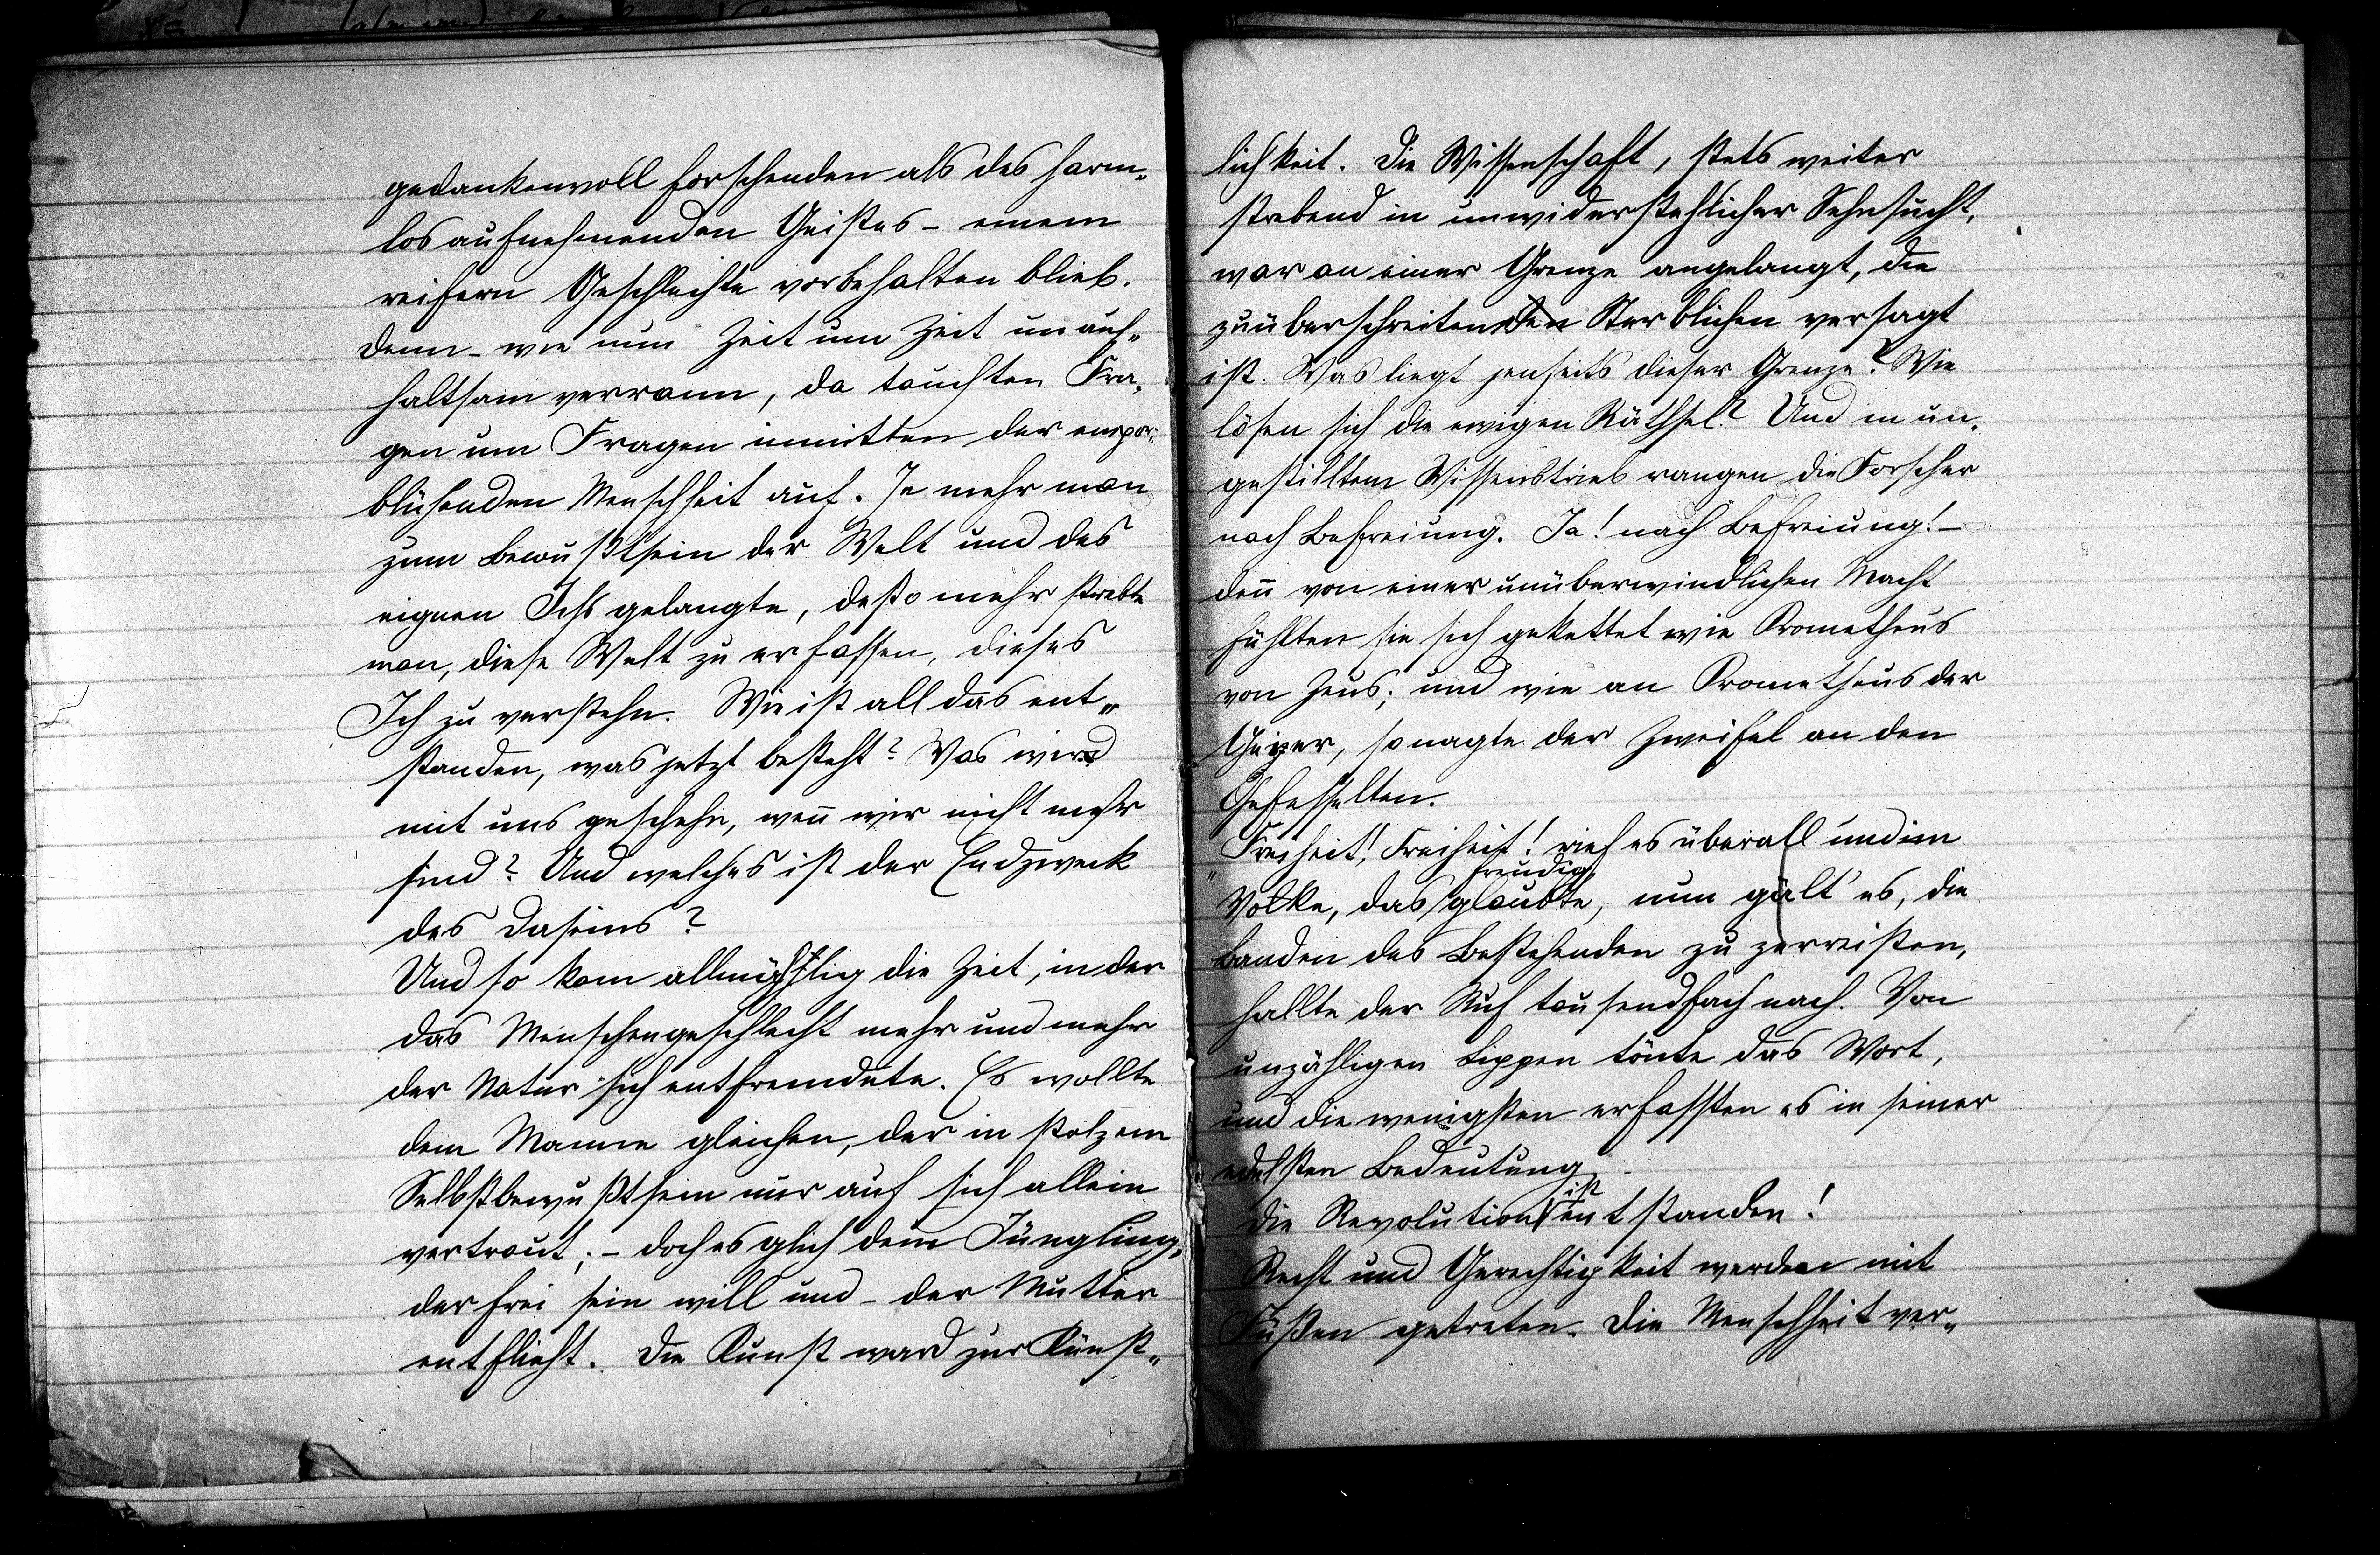 gedankenvoll forschenden als des harm„
los aufnehmenden Geistes – einem
reifern Geschlechte vorbehalten blieb.
Denn – wie nun Zeit um Zeit unauf„
haltsam verrann, da tauchten Fra„
gen um Fragen inmitten der empor„
blühenden Menschheit auf. Je mehr man
zum Bewußtsein der Welt und des
eignen Ichs gelangte, desto mehr strebte
man, diese Welt zu erfassen, dieses
Ich zu verstehn. Wie ist all das ent„
standen, was jetzt besteht? Was wird
mit uns geschehn, wen̄ wir nicht mehr
sind? Und welches ist der Endzweck
des Daseins?
Und so kam allmählig die Zeit, in der
das Menschengeschlecht mehr und mehr
der Natur sich entfremdete. Es wollte
dem Manne gleichen, der in stolzem
Selbstbewußtsein nur auf sich allein
vertraut; – doch es glich dem Jüngling,
der frei sein will und – der Mutter
entflieht. Die Kunst ward zur Künst„
lichkeit. Die Wissenschaft, stets weiter
strebend in unwiderstehlicher Sehnsucht,
war an einer Grenze angelangt, die
zu überschreiten den Sterblichen versagt
ist. Was liegt jenseits dieser Grenze? Wie
lösen sich die ewigen Räthsel? Und in un„
gestilltem Wissenstrieb rangen die Forscher
nach Befreiung. Ja! nach Befreiung! –
den̄ von einer unüberwindlichen Macht
fühlten sie sich gekettet wie Prometheus
von Zeus; und wie an Prometheus der
Geier, so nagte der Zweifel an den
Gefesselten.
„Freiheit! Freiheit! rief es überall und im
Volke, das freudig glaubte, nun gält' es, die
Banden des Bestehenden zu zerreissen,
hallte der Ruf tausendfach nach. Von
unzähligen Lippen tönte das Wort,
und die wenigsten erfassten es in seiner
edelsten Bedeutung.
Die Revolution ist entstanden!
Recht und Gerechtigkeit werden mit
Füßen getreten. Die Menschheit ver„